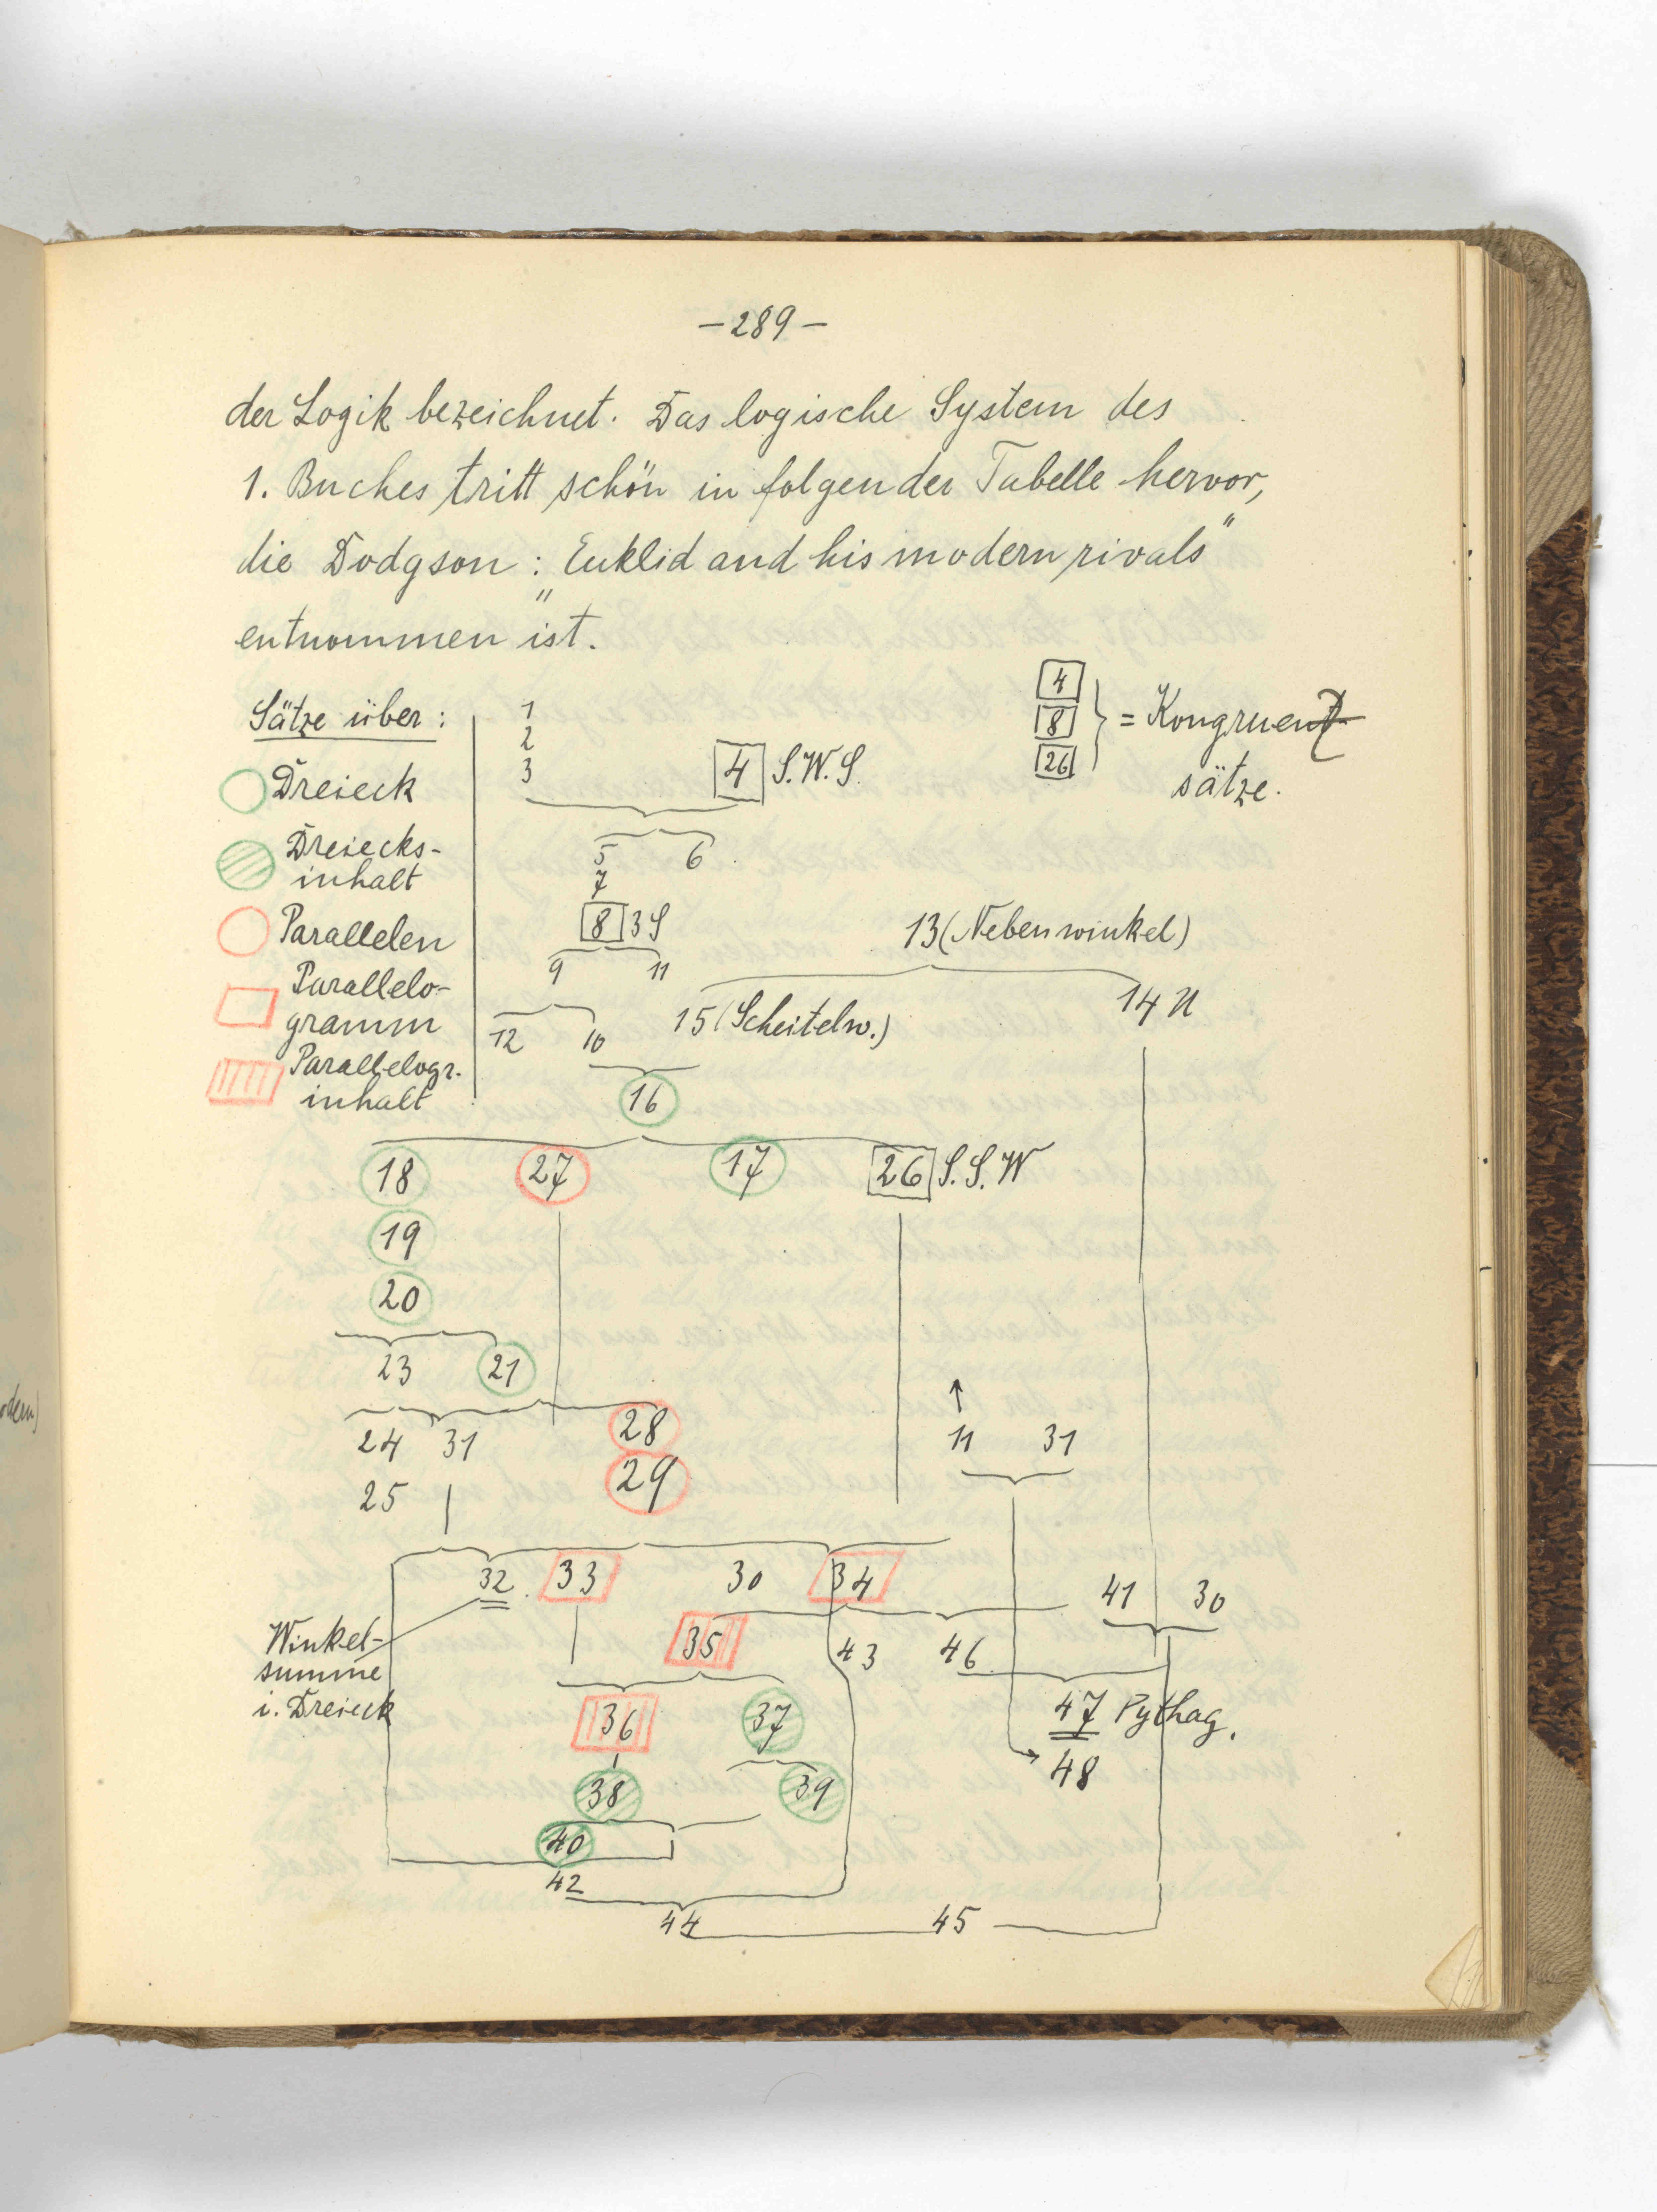 – 289 –
der Logik bezeichnet. Das logische System des
1. Buches tritt schön in folgender Tabelle hervor,
die Dodgson: „Euklid and his modern rivals“
entnommen ist.
Sätze über:
Dreieck
Dreiecks-
inhalt
Parallelen
Parallelo-
gramm
Parallelogr.
inhalt
1
2
3
4 S.W.S.
4
8
26
} = Kongruenz
sätze.
5 6
7
8 3S
9 11
13 (Nebenwinkel)
12 10 15 (Scheitelw.) 14 U
16
18 27 17 26 S.S.W
19
20
23 21
24 31 28 11 31
25 29
32 33 30 34 41 30
Winkel-
summe
i. Dreieck
35 43 46
36 37 47 Pythag.
38 39 48
40
42
44 45